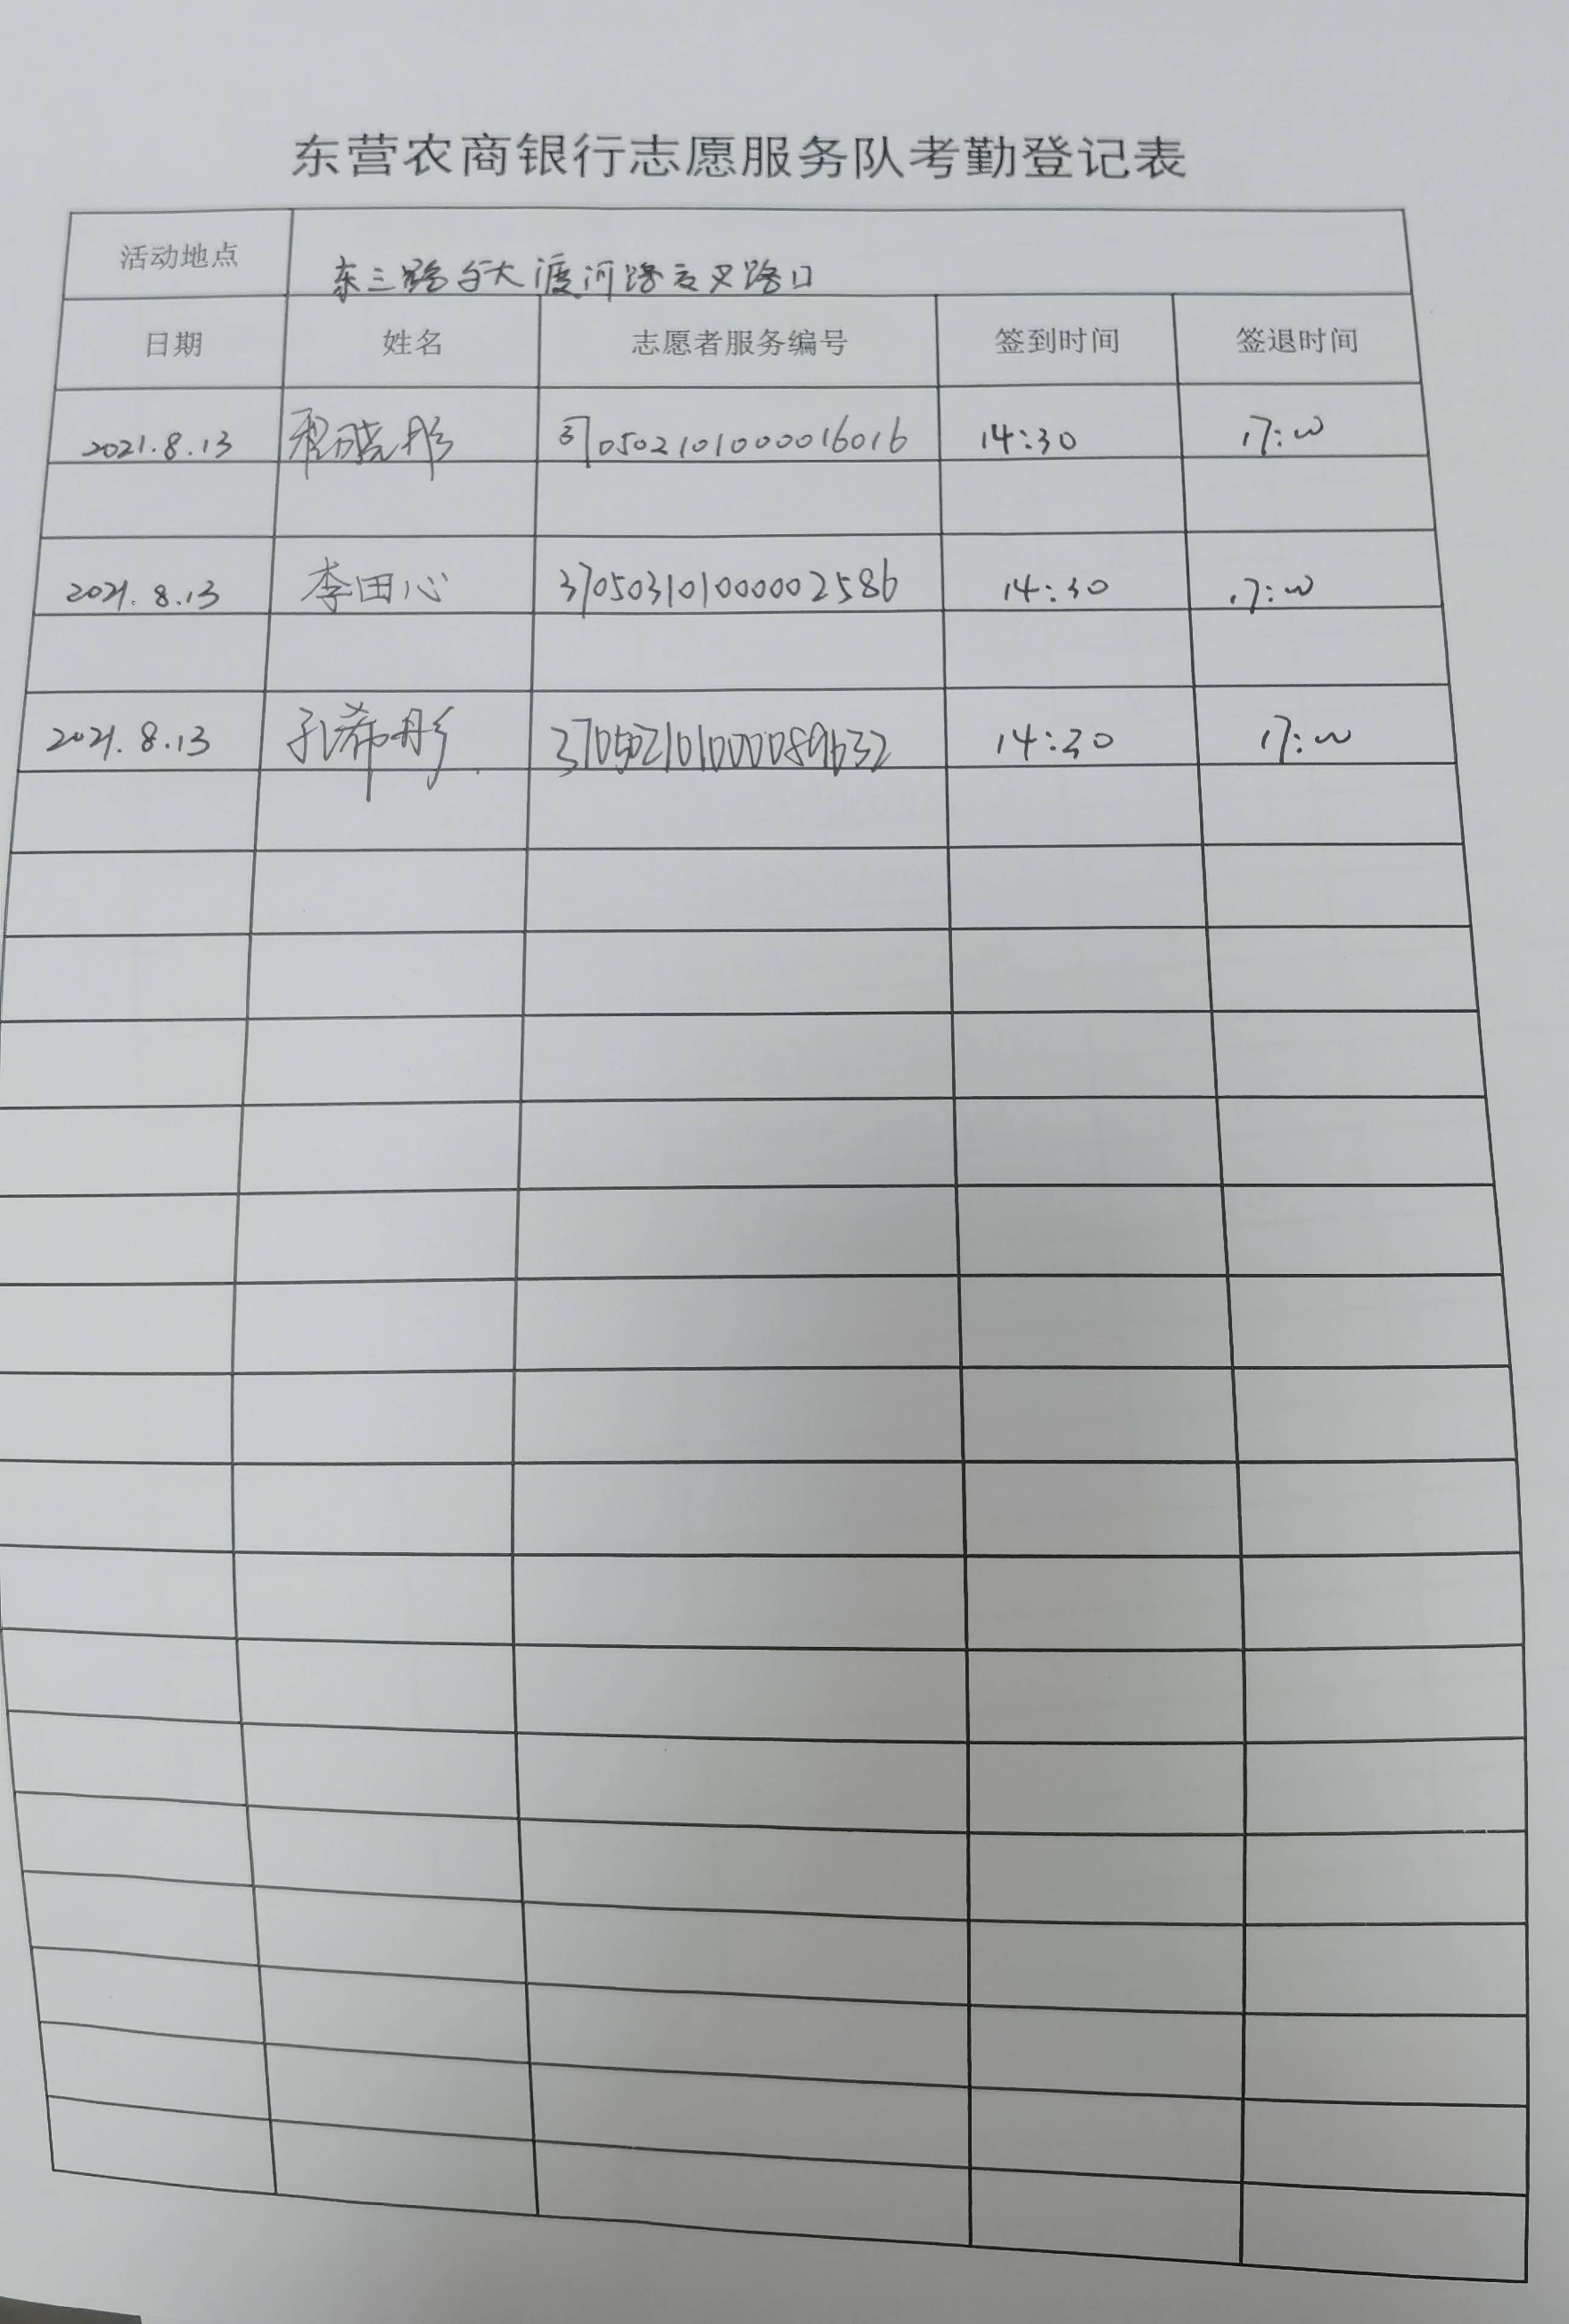 东营农商银行志愿服务队考勤登记表
活动地点 东三路与大渡河路交叉路口
日期 姓名 志愿者服务编号 签到时间 签退时间
2021.8.13 程晓彤 370502101000016016 14:30 17:00
2021.8.13 李田心 370503101000002586 14:30 17:00
2021.8.13 孔希彤 370502101000089632 14:30 17:00